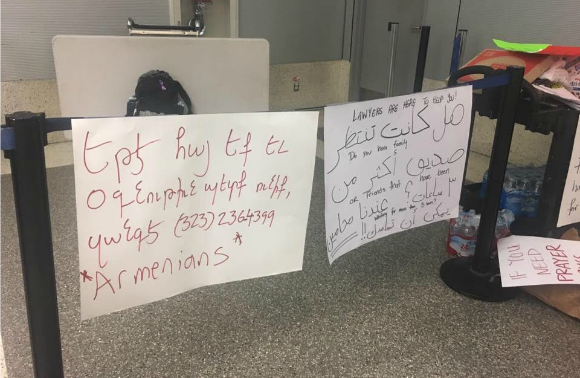 Եթե հայ եք եւ
Օգնութիւն պետք ունիք,
կանչեք (323) 2364399
*Armenians*
LAWYERS ARE HERE TO HELP YOU!
هل كانت تنتظر
Do you have family
صديق أكثر من
or friends that have been
٣ ساعات؟ عندنا محامين
waiting for more than 3 hours?
يمكن أن تساعدك!!
IF YOU
NEED
PRAYER